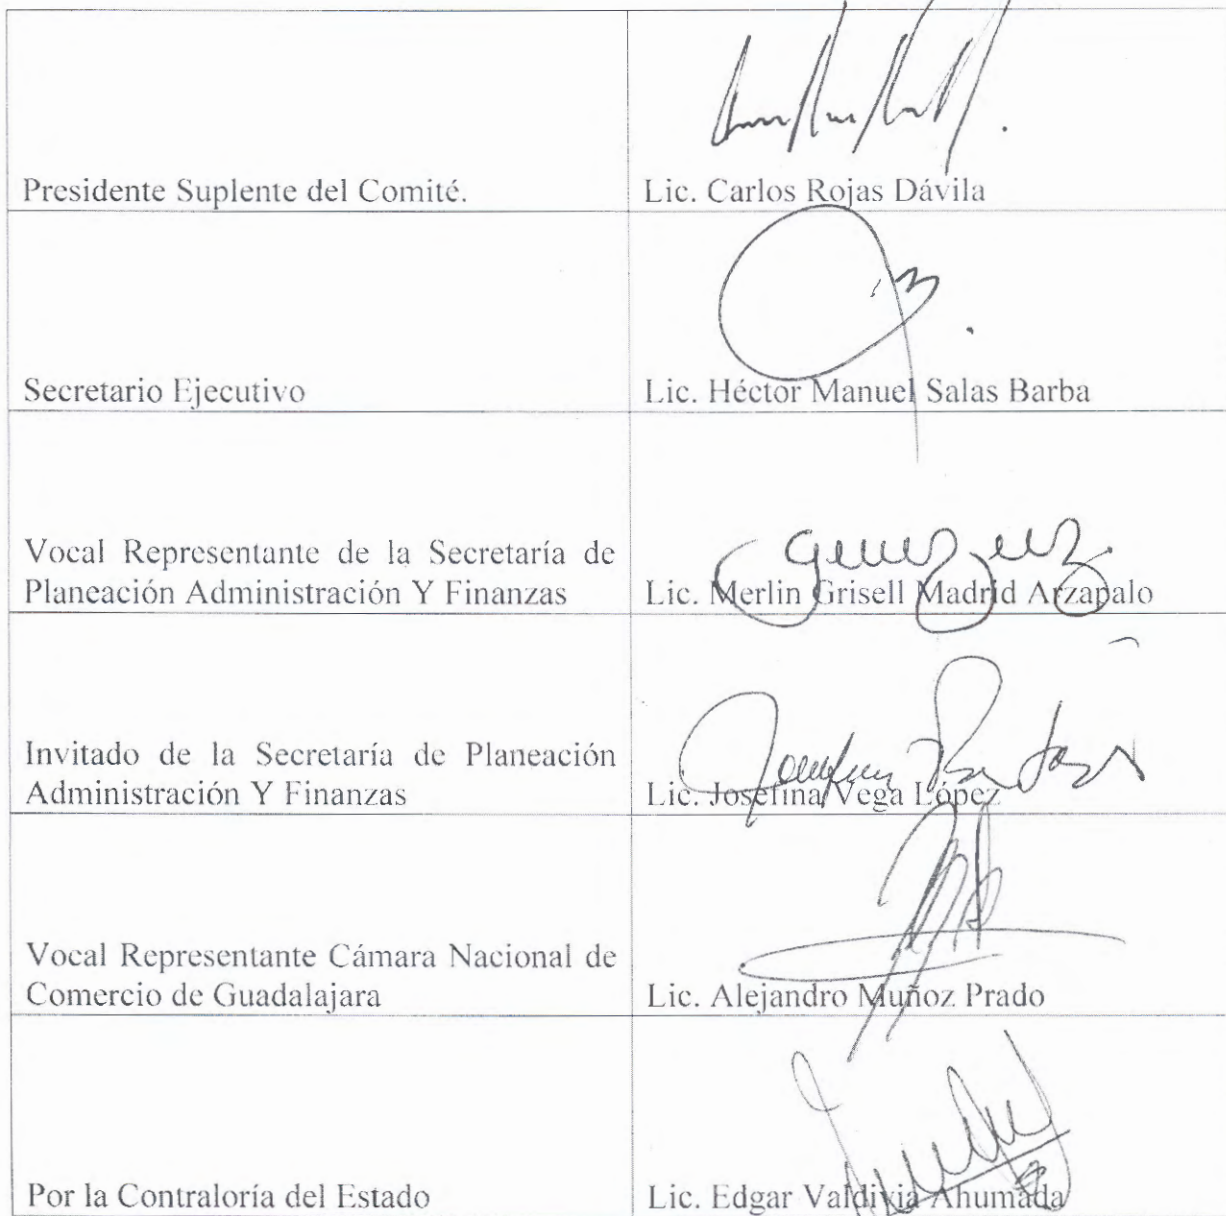 Presidente Suplente del Comité.
Lic. Carlos Rojas Dávila
Secretario Ejecutivo
Lic. Héctor Manuel Salas Barba
Vocal Representante de la Secretaría de
Planeación Administración Y Finanzas
Lic. Merlin Grisell Madrid Arzapalo
Invitado de la Secretaría de Planeación
Administración Y Finanzas
Lic. Josefina Vega López
Vocal Representante Cámara Nacional de
Comercio de Guadalajara
Lic. Alejandro Muñoz Prado
Por la Contraloría del Estado
Lic. Edgar Valdivia Ahumada